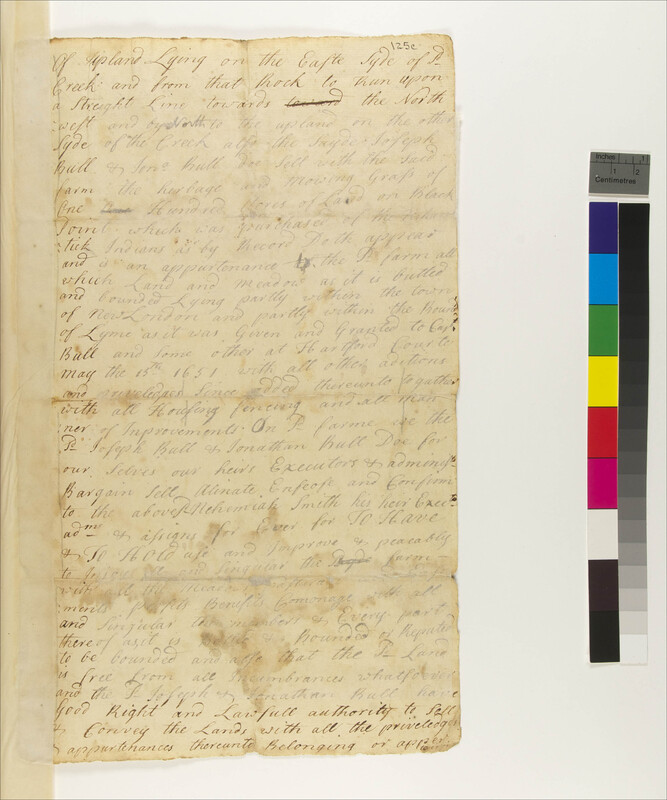 125c
Of upland Lying on the Easte Syde of Sd
Creek and from that Rock to Run upon
a Streight Line towards the North
west and by North to the upland on the other
Syde of the Creek also the Sayde Joseph
Bull & Jona Bull doe Sell with the said
farm the herbage and Mowing Grass of
One Hundred Acres of Land on Black
Point which was purchased of
tick Indians as by Record Doth appear
and is an appurtenance to the Sd farm all
which Land and meadow as it is butted
and bounded Lying partly within the town
of New London and partly within the Bounds
of Lyme as it was Given and Granted to Capt
Bull and Some other at Hartford Courte
may the 15th 1651 with all other aditions
and priveledges Since added thereunto together
with all Housing fencing and all man
ner of Improvements On Sd farme we the
Sd Joseph Bull & Jonathan Bull Doe for
our Selves our heirs Executors & adminisrs
Bargain Sell Alinate Enfeofe and Confirm
to the above Nehemiah Smith his heir Execrs
admrs & asigns for Ever for To Have
& To HOLD use and Improve & peaceably
to all and Singular the farm
with all
ments profits Benefits Comonage with all
and Singular the members & Every part
thereof as it is Butted & Bounded or Reputed
to be bounded and also that the Sd Land
is free from all Incumbrances whatsoever
and the Sd Joseph & Jonathan Bull have
Good Right and Lawfull authority to Sell
& Convey the Lands with all the priveledges
& appurtenances thereunto Belonging or apper
Inches 1 2
Centimetres